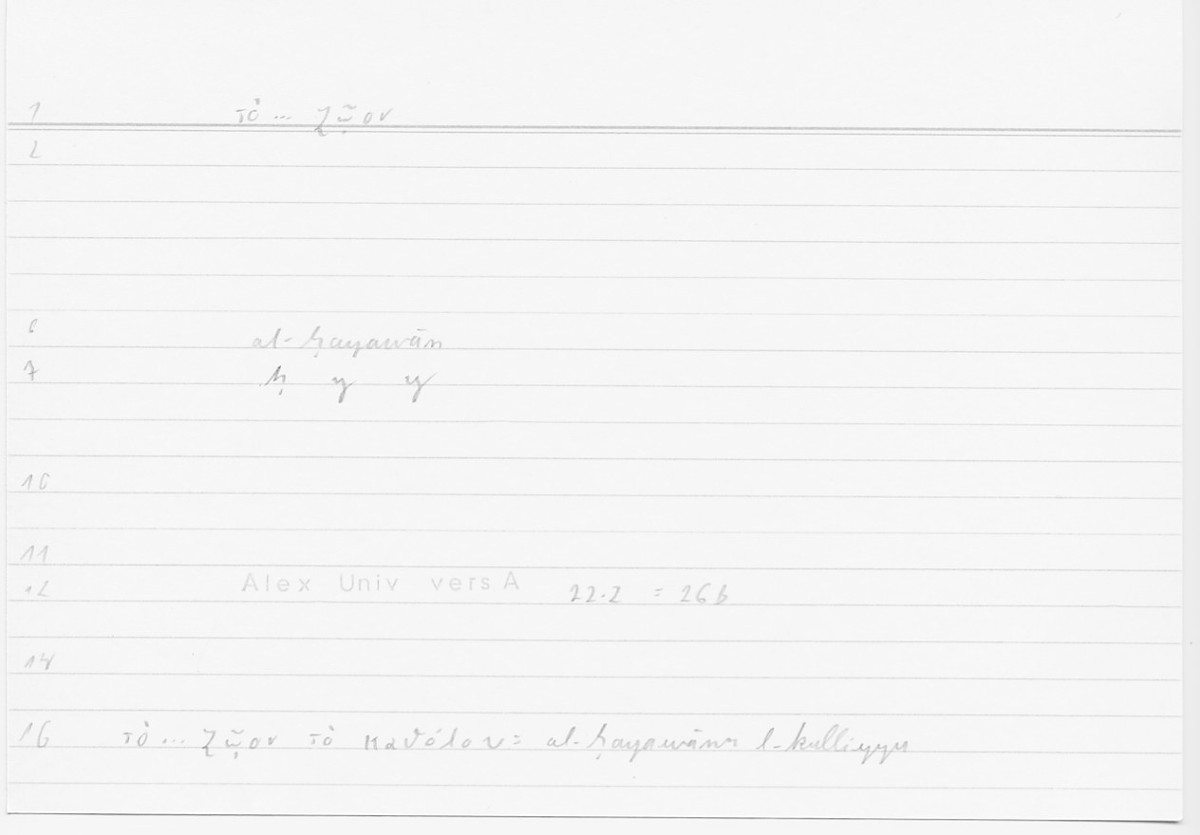 1 τὸ ... ζῷον
2
6 al-ḥayawān
7 ḥ y y
10
11
12 Alex Univ vers A 22.2 = 26b
14
16 τὸ ... ζῷον τὸ καθόλου = al-ḥayawānu l-kulliyyu